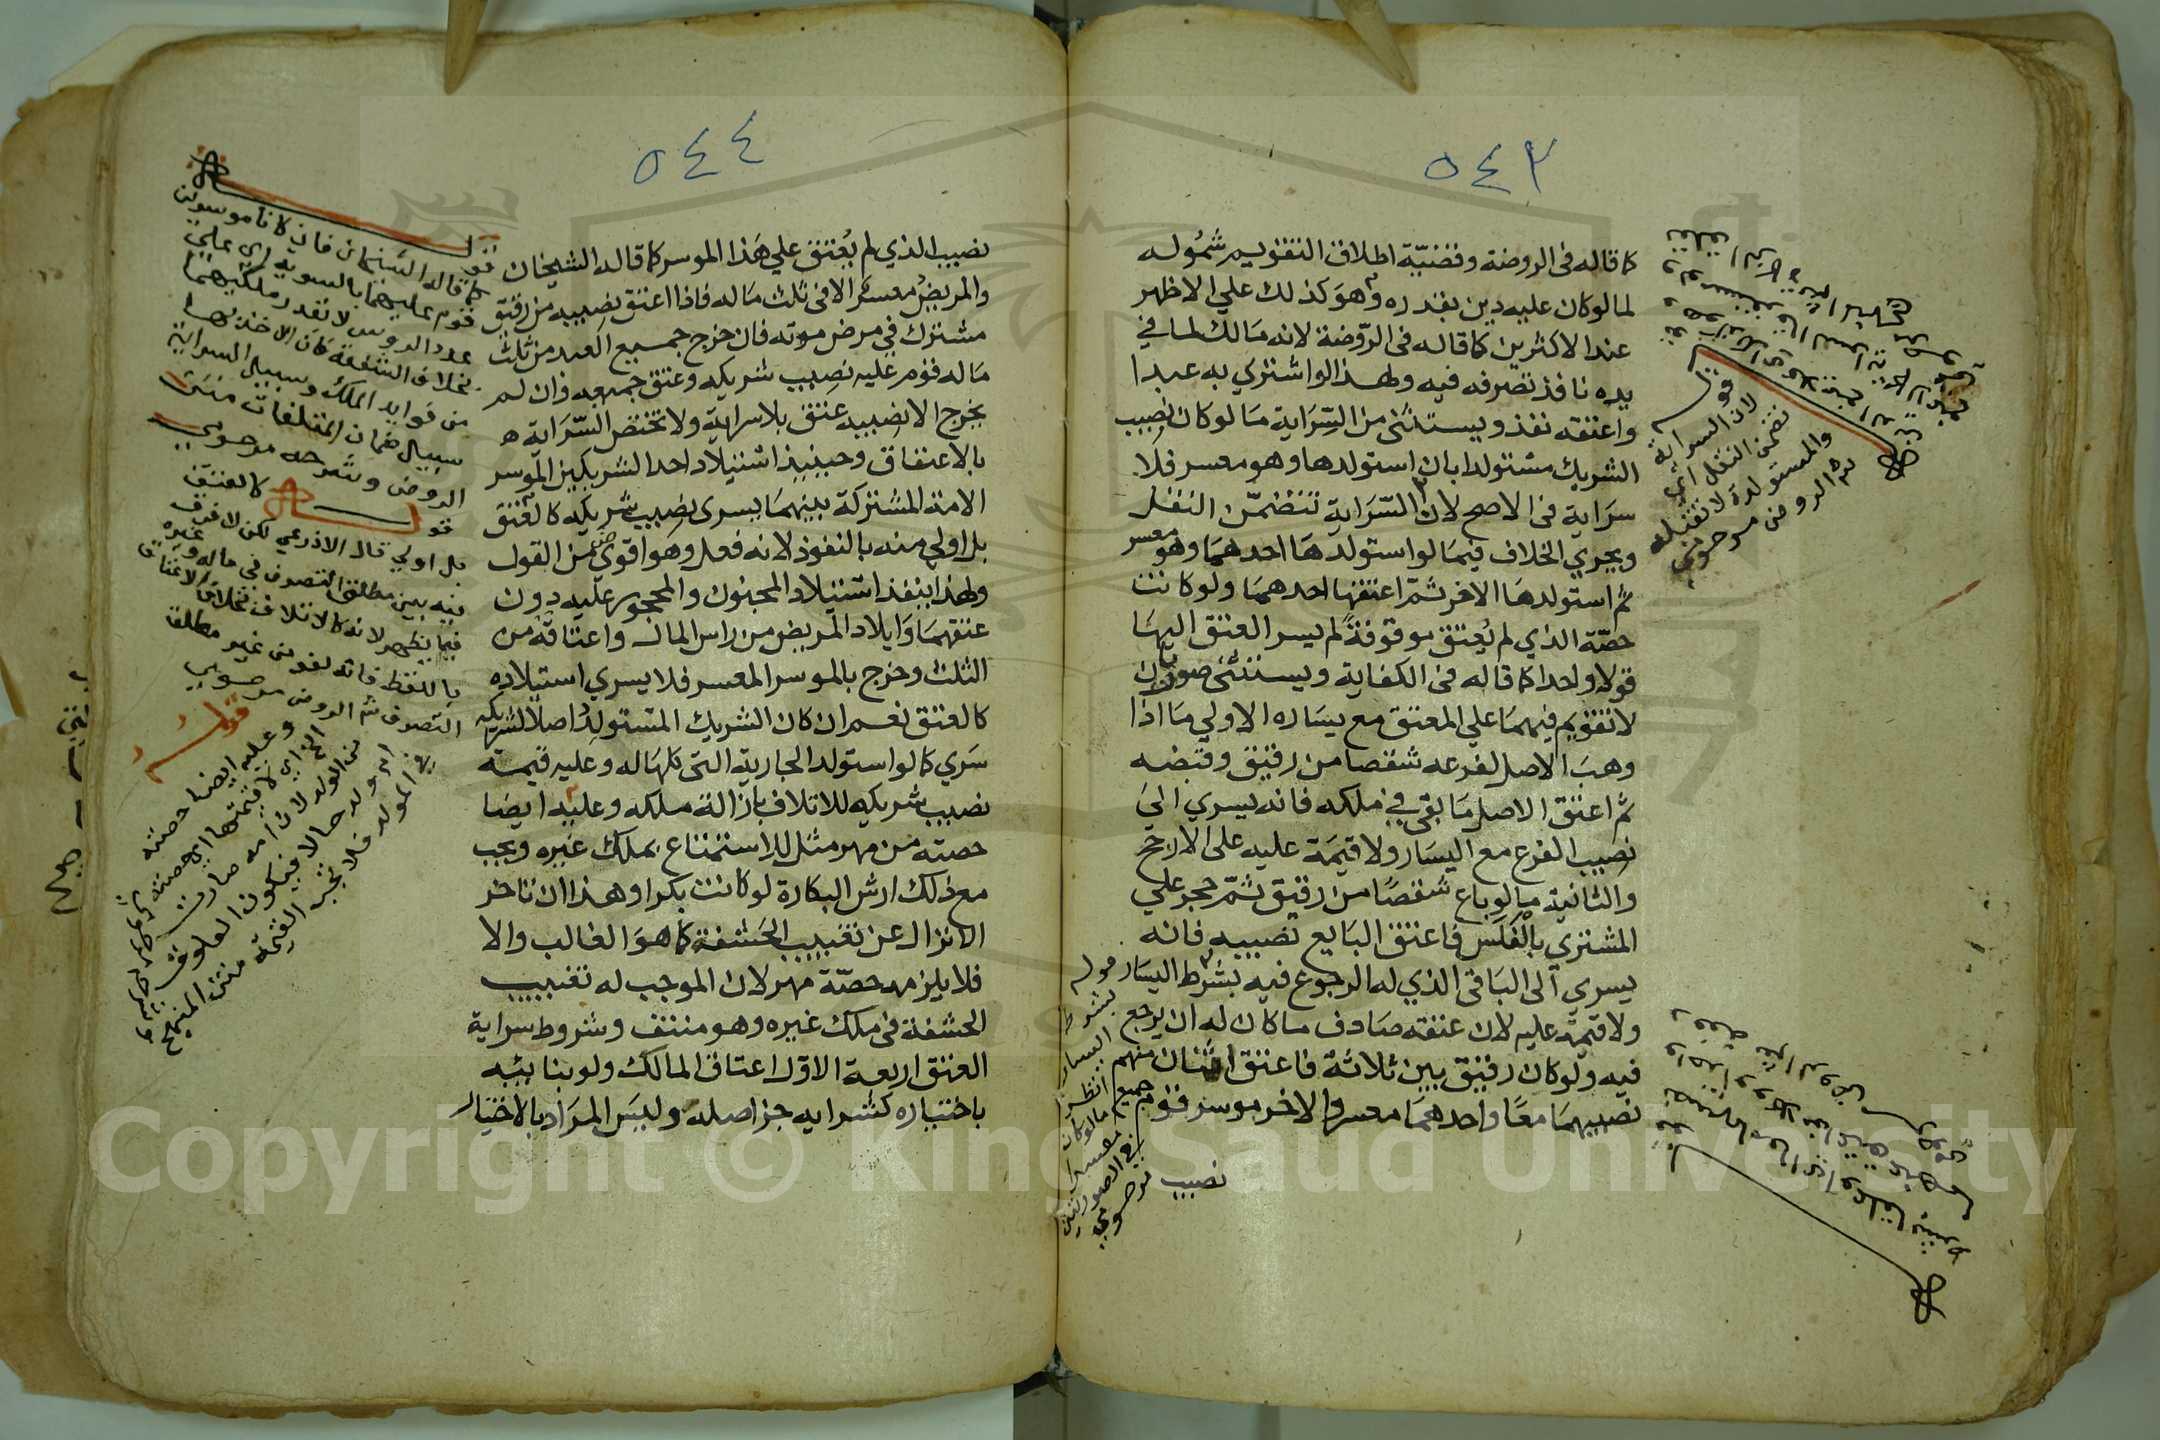 ٥٤٣
كما قاله في الروضة وقضيّة اطلاق التقويم شموله
لما لو كان عليه دين بقدره وهو كذلك علي الاظهر
عند الاكثرين كما قاله في الرّوضة لانه مالك لما في
يده نافذ تصرفه فيه ولهذا لو اشتري به عبدا
واعتقه نفذ ويستثنى من السّراية ما لو كان نصيب
الشريك مستولدا بان استولدها وهو معسر فلا
سراية في الاصح لان السّراية تتضمّن النقل
ويجري الخلاف فيما لو استولدها احدهما وهو معسر
ثم استولدها الاخر ثمّ اعتقها احدهما ولو كانت
حصّة الذي لم يُعتق موقوفةً لم يسر العتق اليها
قولا واحدا كما قاله في الكفاية ويستثنى صورتان
لا تقويم فيهما علي المعتق مع يساره الاولي ما اذا
وهب الاصل لفرعه شقصا من رقيق وقبضه
ثم اعتق الاصل ما بقى في ملكه فانه يسري الى
نصيب الفرع مع اليسار ولا قيمَة عليه على الارجح
والثانية ما لو باع شقصًا من رقيق ثمّ حجر علي
المشتري بالْفَلَس فاعتق البَايع نصيبه فانه
يسري الى البَاقي الذي له الرجوع فيه بشرط اليسار
ولا قيمَة عليه لان عتقه صَادف ما كان له ان يرجع
فيه ولو كان رقيق بين ثلاثة فاعتق اثنان منهم
نصيبهما معًا واحدهما معسر والاخر موسر قوم جميع
نصيب
قوله
لان السراية
تتضمن النقل اي
والمستولدة لا تقبله
شرح الروض مرحومي
قوله
بشرط
اليسار
انظر
ما لو كان
معسرا
في الصورتين
مرحومي
٥٤٤
نصيب الذي لم يُعتق علي هَذا الموسر كما قاله الشيخان
والمريضُ معسَر الا في ثلث مَاله فاذا اعتق نصيبه من رقيق
مشترك في مرض موته فان خرج جميع العبد من ثلث
مَاله قوم عليه نصيب شريكه وعتق جميعه وان لم
يخرج الا نصيبه عتق بلا سراية ولا تختص السّراية
بالاعتاق وحينيذ استيلاد احد الشريكين الموسر
الامة المشتركة بينهمَا يسرى نصيب شريكه كالعتق
بل اولي منه بالنفوذ لانه فعل وهو اقوى من القول
ولهذا ينفذ استيلاد المجنون والمحجور عليه دون
عتقهمَا وَايلاد المريض من راس المال واعتاقه من
الثلث وخرج بالموسر المعسر فلا يسري استيلاده
كالعتق نعم ان كان الشريك المستولِدُ اصلا لشريكه
سَري كما لو استولد الجارية التي كلهَا له وعليه قيمة
نصيب شريكه للاتلاف بازالة ملكه وعليه ايضا
حصته من مهر مثل للاستمتاع بملك غيره ويجب
مع ذلك ارش البكارة لو كانت بكرا وهذا ان تاخر
الانزال عن تغييب الحَشفة كما هوَ الغالب والا
فلا يلزمه حصّة مهر لان الموجب له تغييب
الحشفة في ملك غيره وهو منتف وشروط سراية
العتق اربعة الاوّل اعتاق المالك ولو بنائبه
باختياره كشرايه جز اصله وليسَ المرَاد بالاختيار
قوله
كما قاله الشيخان فان كانا موسرين
قوم عليهما بالسوية اي علي
عدد الروس لا بقدر ملكيهما
بخلاف الشفعة كان الاخذ بها
من فوايد الملك وسبيل السراية
سبيل ضمان المتلفات متن
الروض وشرحه مرحومي
قوله كالعتق
بل اولي قال الاذرعي لكن لا فرق
فيه بين مطلق التصرف في ماله وغيره
فيما يظهر لانه كالاتلاف بخلاف الاعتاق
باللفظ فانه لغو من غير مطلق
التصرف شرح الروض مرحومي
قوله
وعليه ايضا حصته